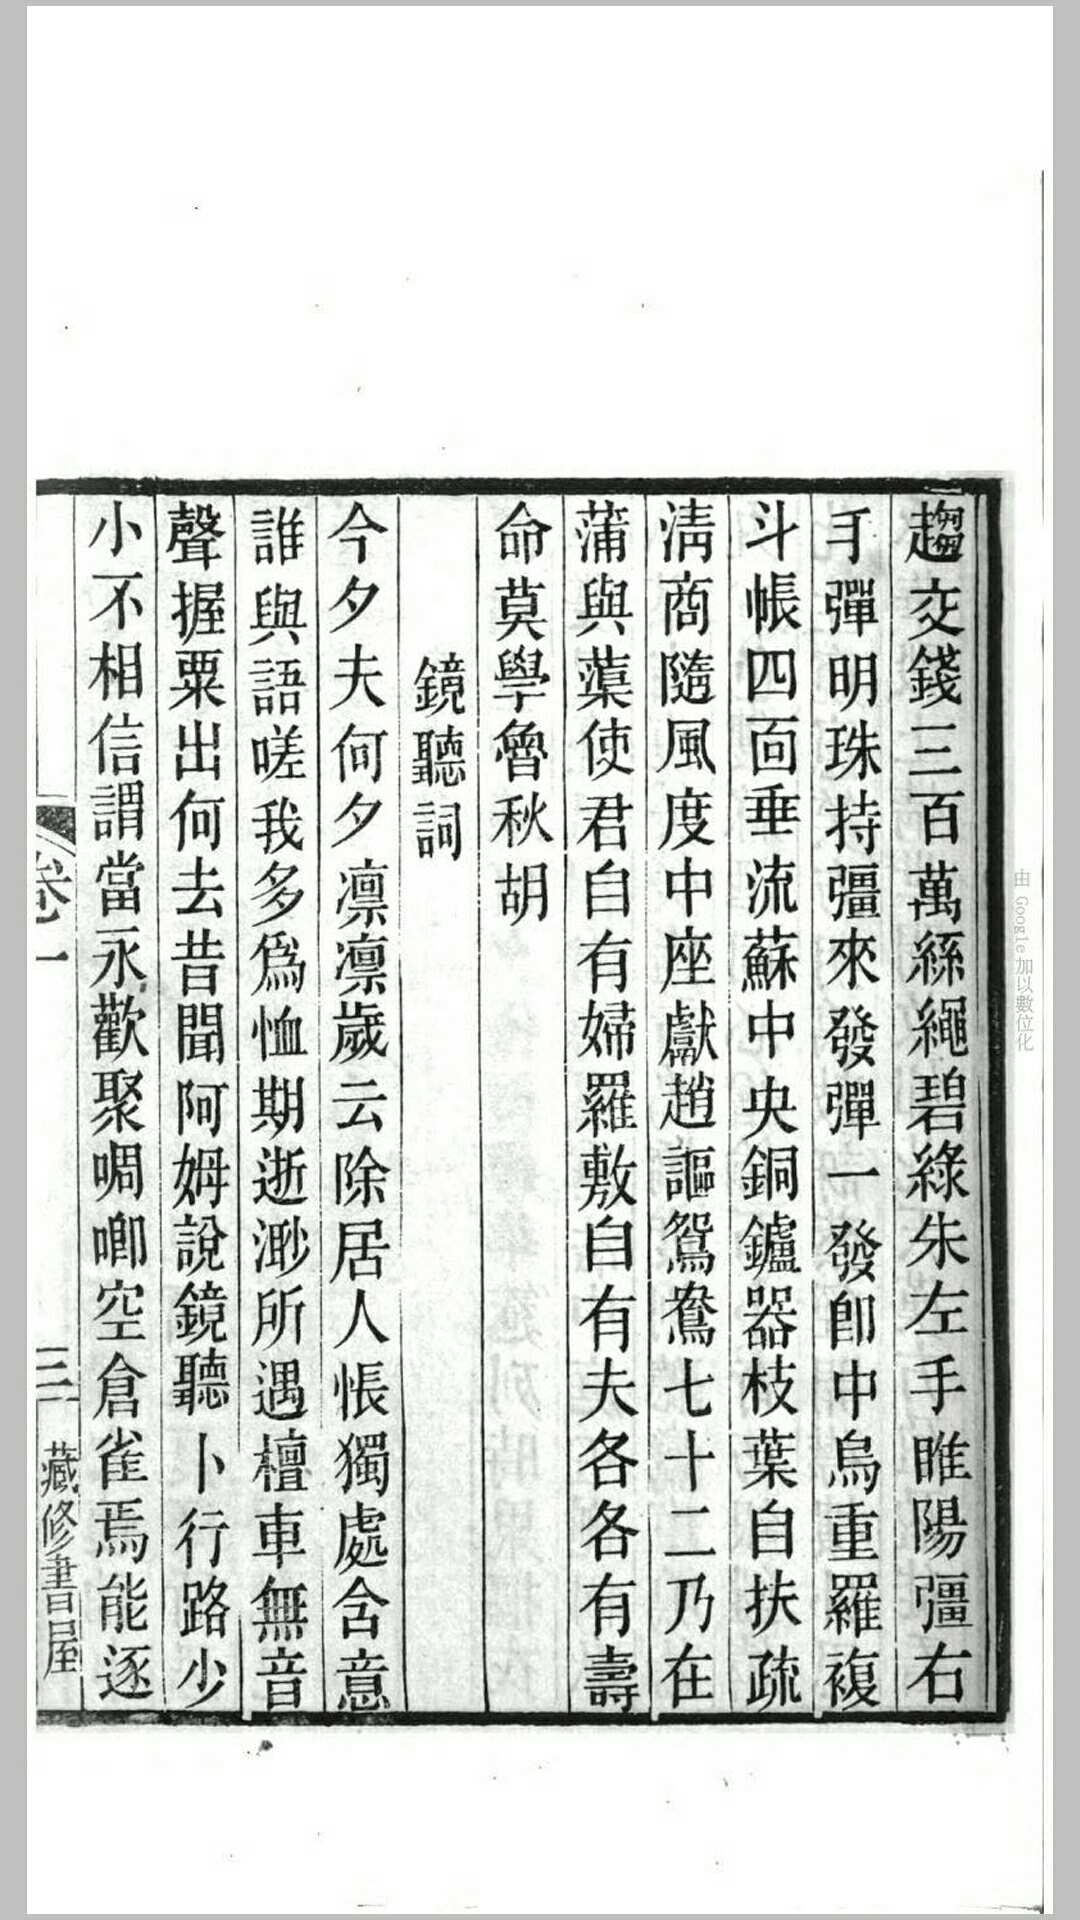 趨交錢三百萬絲繩碧綠朱左手睢陽彊右
手彈明珠持彊來發彈一發卽中烏重羅複
斗帳四面垂流蘇中央銅鑪器枝葉自扶疏
淸商隨風度中座獻趙謳鴛鴦七十二乃在
蒲與蕖使君自有婦羅敷自有夫各各有壽
命莫學魯秋胡
鏡聽詞
今夕夫何夕凛凛歲云除居人悵獨處含意
誰與語嗟我多爲恤期逝渺所遇檀車無音
聲握粟出何去昔聞阿姆說鏡聽卜行路少
小不相信謂當永歡聚啁啣空倉雀焉能逐
卷一
三
藏修書屋
由 Google 加以數位化